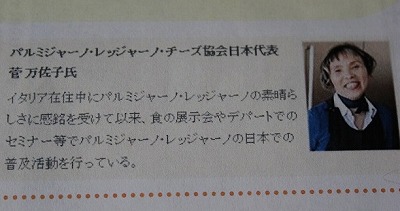 パルミジャーノ・レッジャーノ・チーズ協会日本代表
菅 万佐子氏
イタリア在住中にパルミジャーノ・レッジャーノの素晴ら
しさに感銘を受けて以来、食の展示会やデパートでの
セミナー等でパルミジャーノ・レッジャーノの日本での
普及活動を行っている。